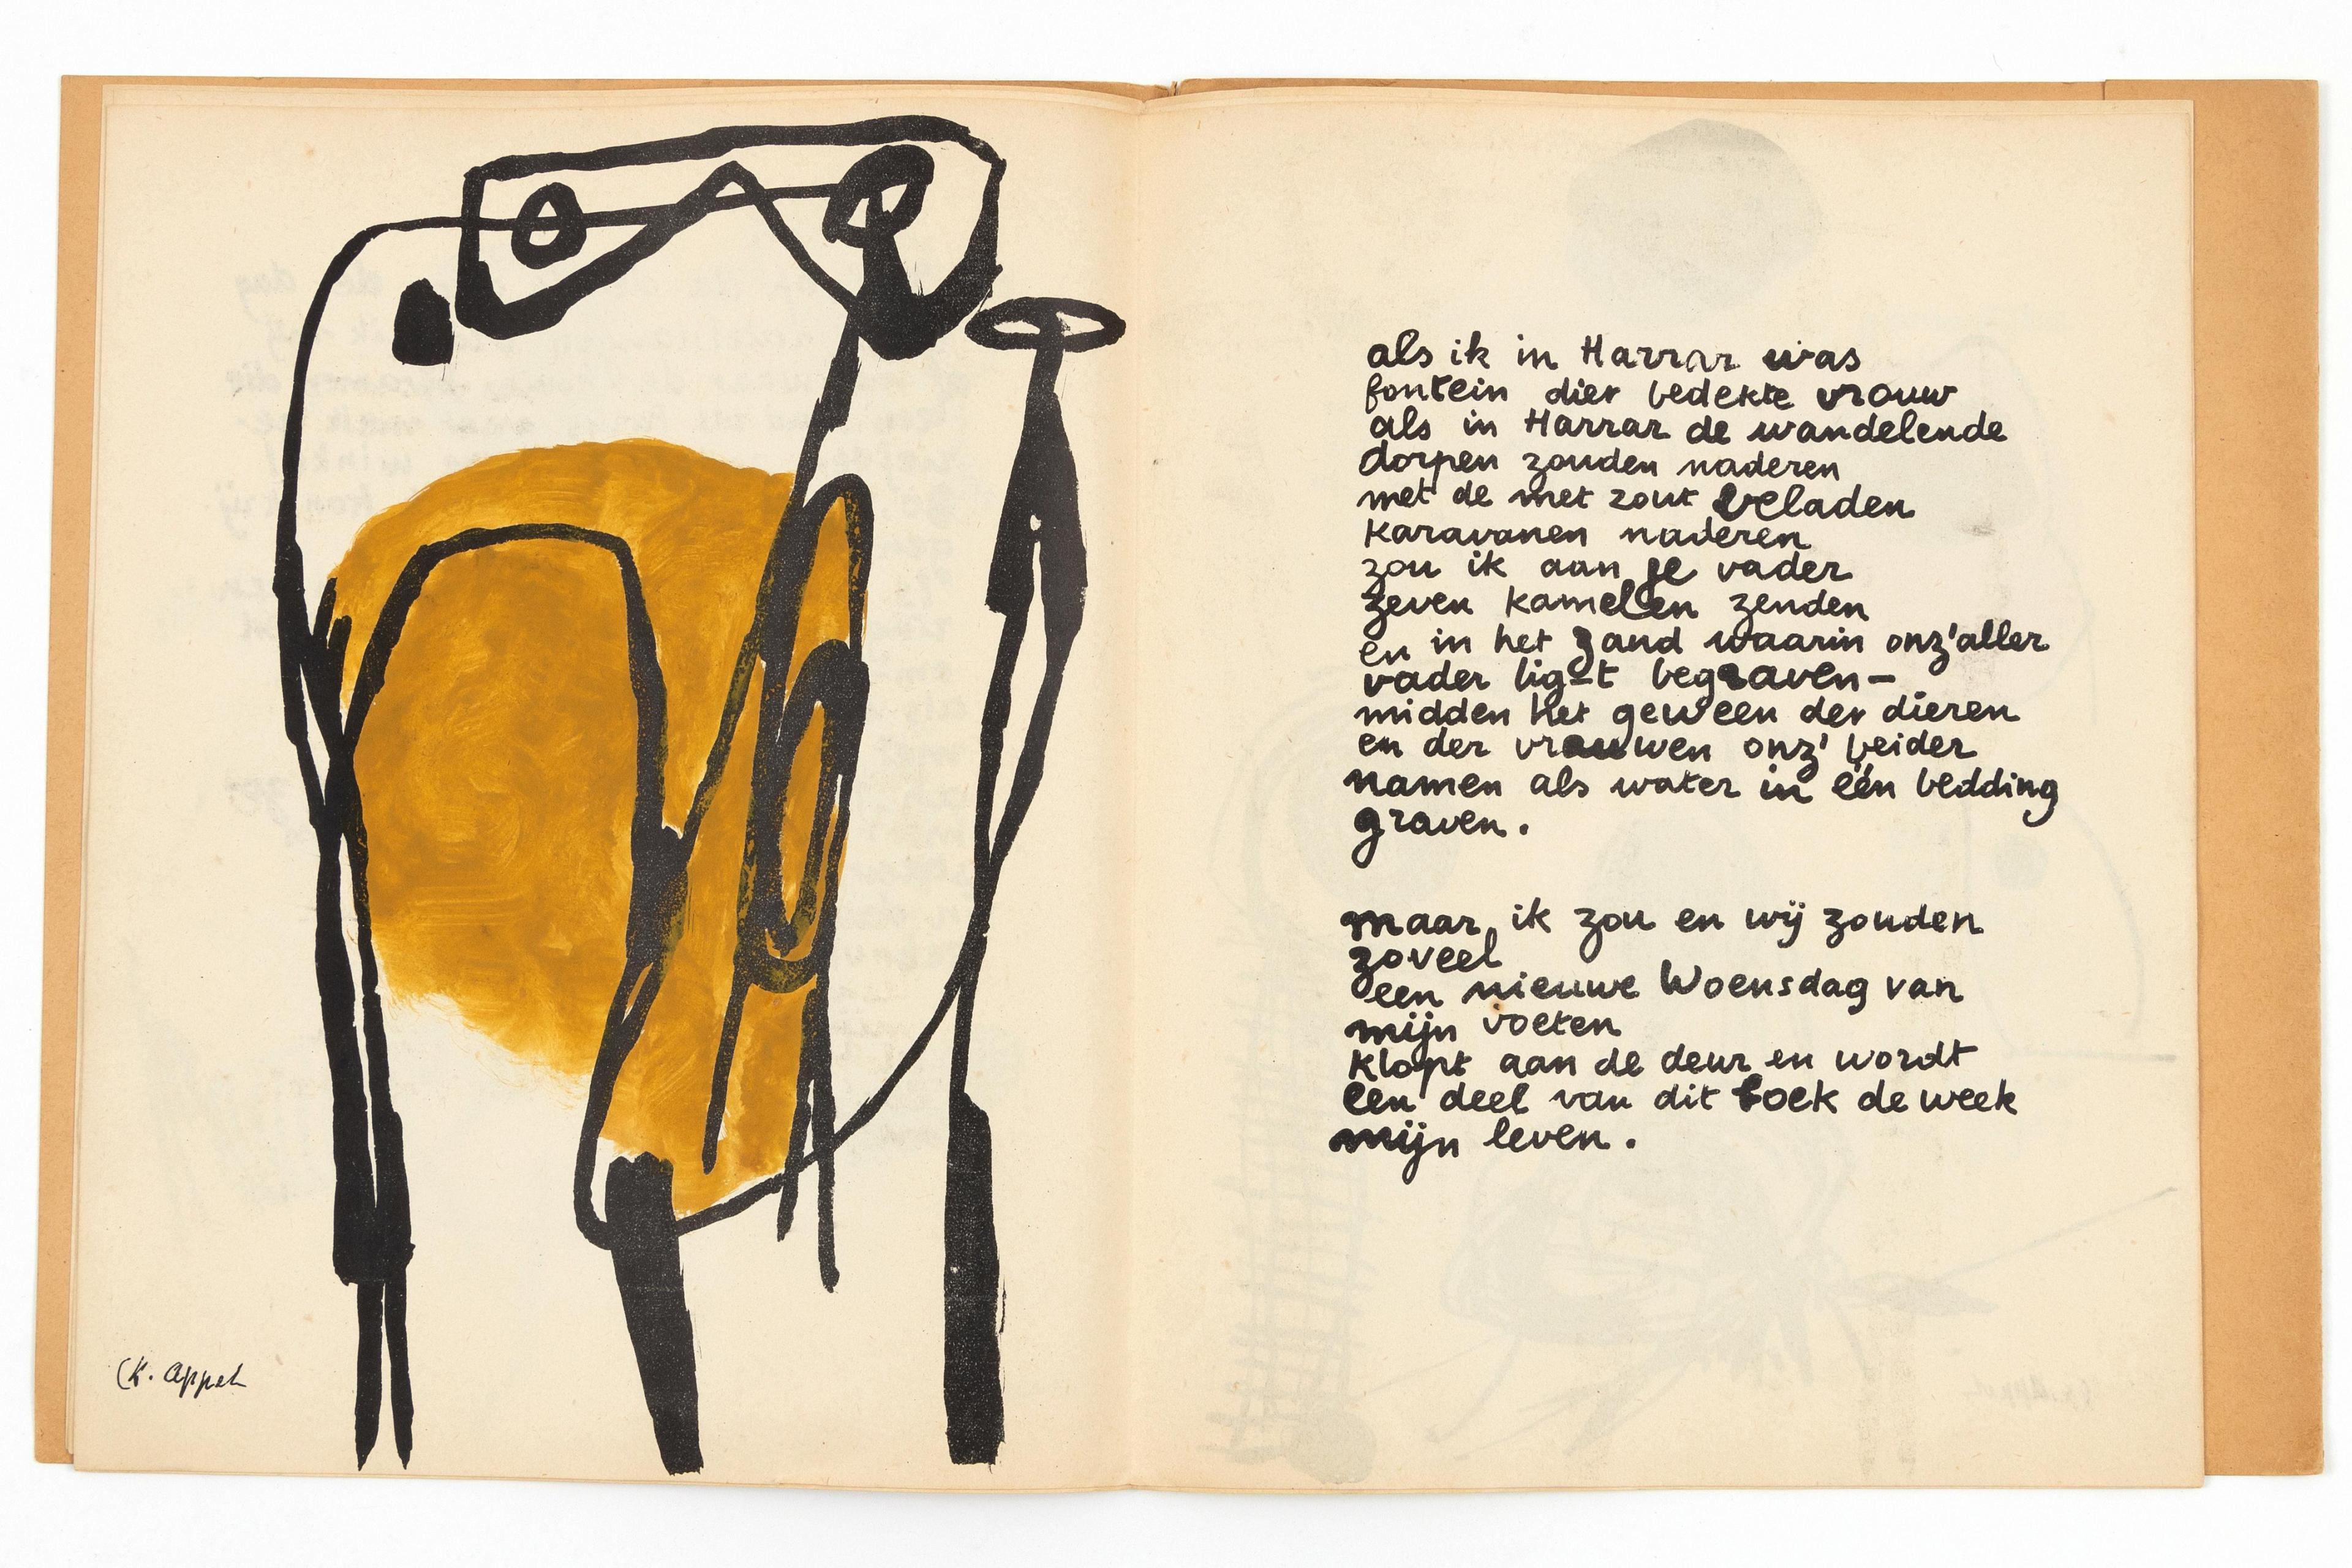 (K. Appel
als ik in Harrar was
fontein dier bedekte vrouw
als in Harrar de wandelende
dorpen zouden naderen
met de met zout beladen
karavanen naderen
zou ik aan je vader
zeven kamelen zenden
en in het zand waarin onz'aller
vader ligt begraven—
midden het geween der dieren
en der vrouwen onz' beider
namen als water in één bedding
graven.
maar ik zou en wij zouden
zoveel
een nieuwe Woensdag van
mijn voeten
klopt aan de deur en wordt
een deel van dit boek de week
mijn leven.